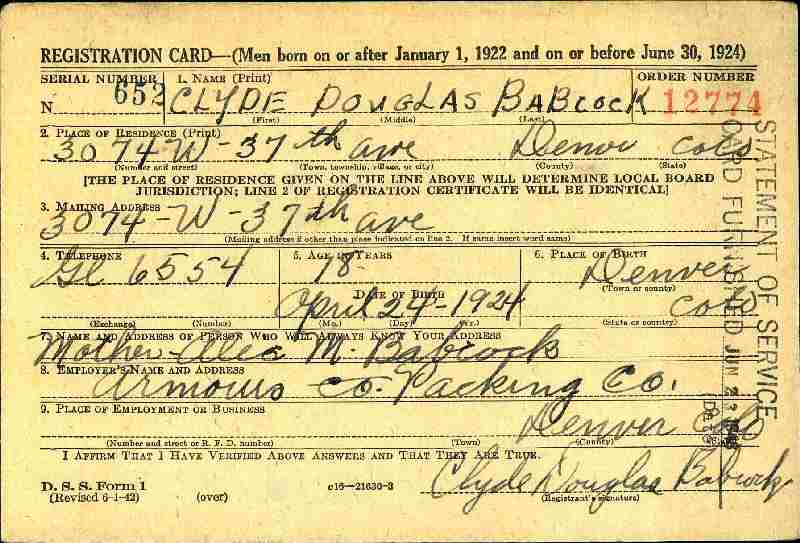 REGISTRATION CARD—(Men born on or after January 1, 1922 and on or before June 30, 1924)
SERIAL NUMBER 1. NAME (Print) ORDER NUMBER
N 652 CLYDE DOUGLAS BABCOCK 12774
(First) (Middle) (Last)
2. PLACE OF RESIDENCE (Print)
3074-W-37th ave Denver Colo
(Number and street) (Town, township, village, or city) (County) (State)
[THE PLACE OF RESIDENCE GIVEN ON THE LINE ABOVE WILL DETERMINE LOCAL BOARD
JURISDICTION; LINE 2 OF REGISTRATION CERTIFICATE WILL BE IDENTICAL]
3. MAILING ADDRESS
3074-W-37th ave
(Mailing address if other than place indicated on line 2. If same insert word same)
4. TELEPHONE 5. AGE IN YEARS 6. PLACE OF BIRTH
Gl 6554 18 Denver
(Town or county)
DATE OF BIRTH
April 24-1924 Colo
(Exchange) (Number) (Mo.) (Day) (Yr.) (State or country)
7. NAME AND ADDRESS OF PERSON WHO WILL ALWAYS KNOW YOUR ADDRESS
Mother- M. Babcock
8. EMPLOYER'S NAME AND ADDRESS
Armours Co. Packing Co.
9. PLACE OF EMPLOYMENT OR BUSINESS
Denver Colo
(Number and street or R. F. D. number) (Town) (County) (State)
I AFFIRM THAT I HAVE VERIFIED ABOVE ANSWERS AND THAT THEY ARE TRUE.
Clyde Douglas Babcock
D. S. S. Form 1 c16—21630-2 (Registrant's signature)
(Revised 6-1-42) (over)
STATEMENT OF SERVICE
CARD FURNISHED JUN